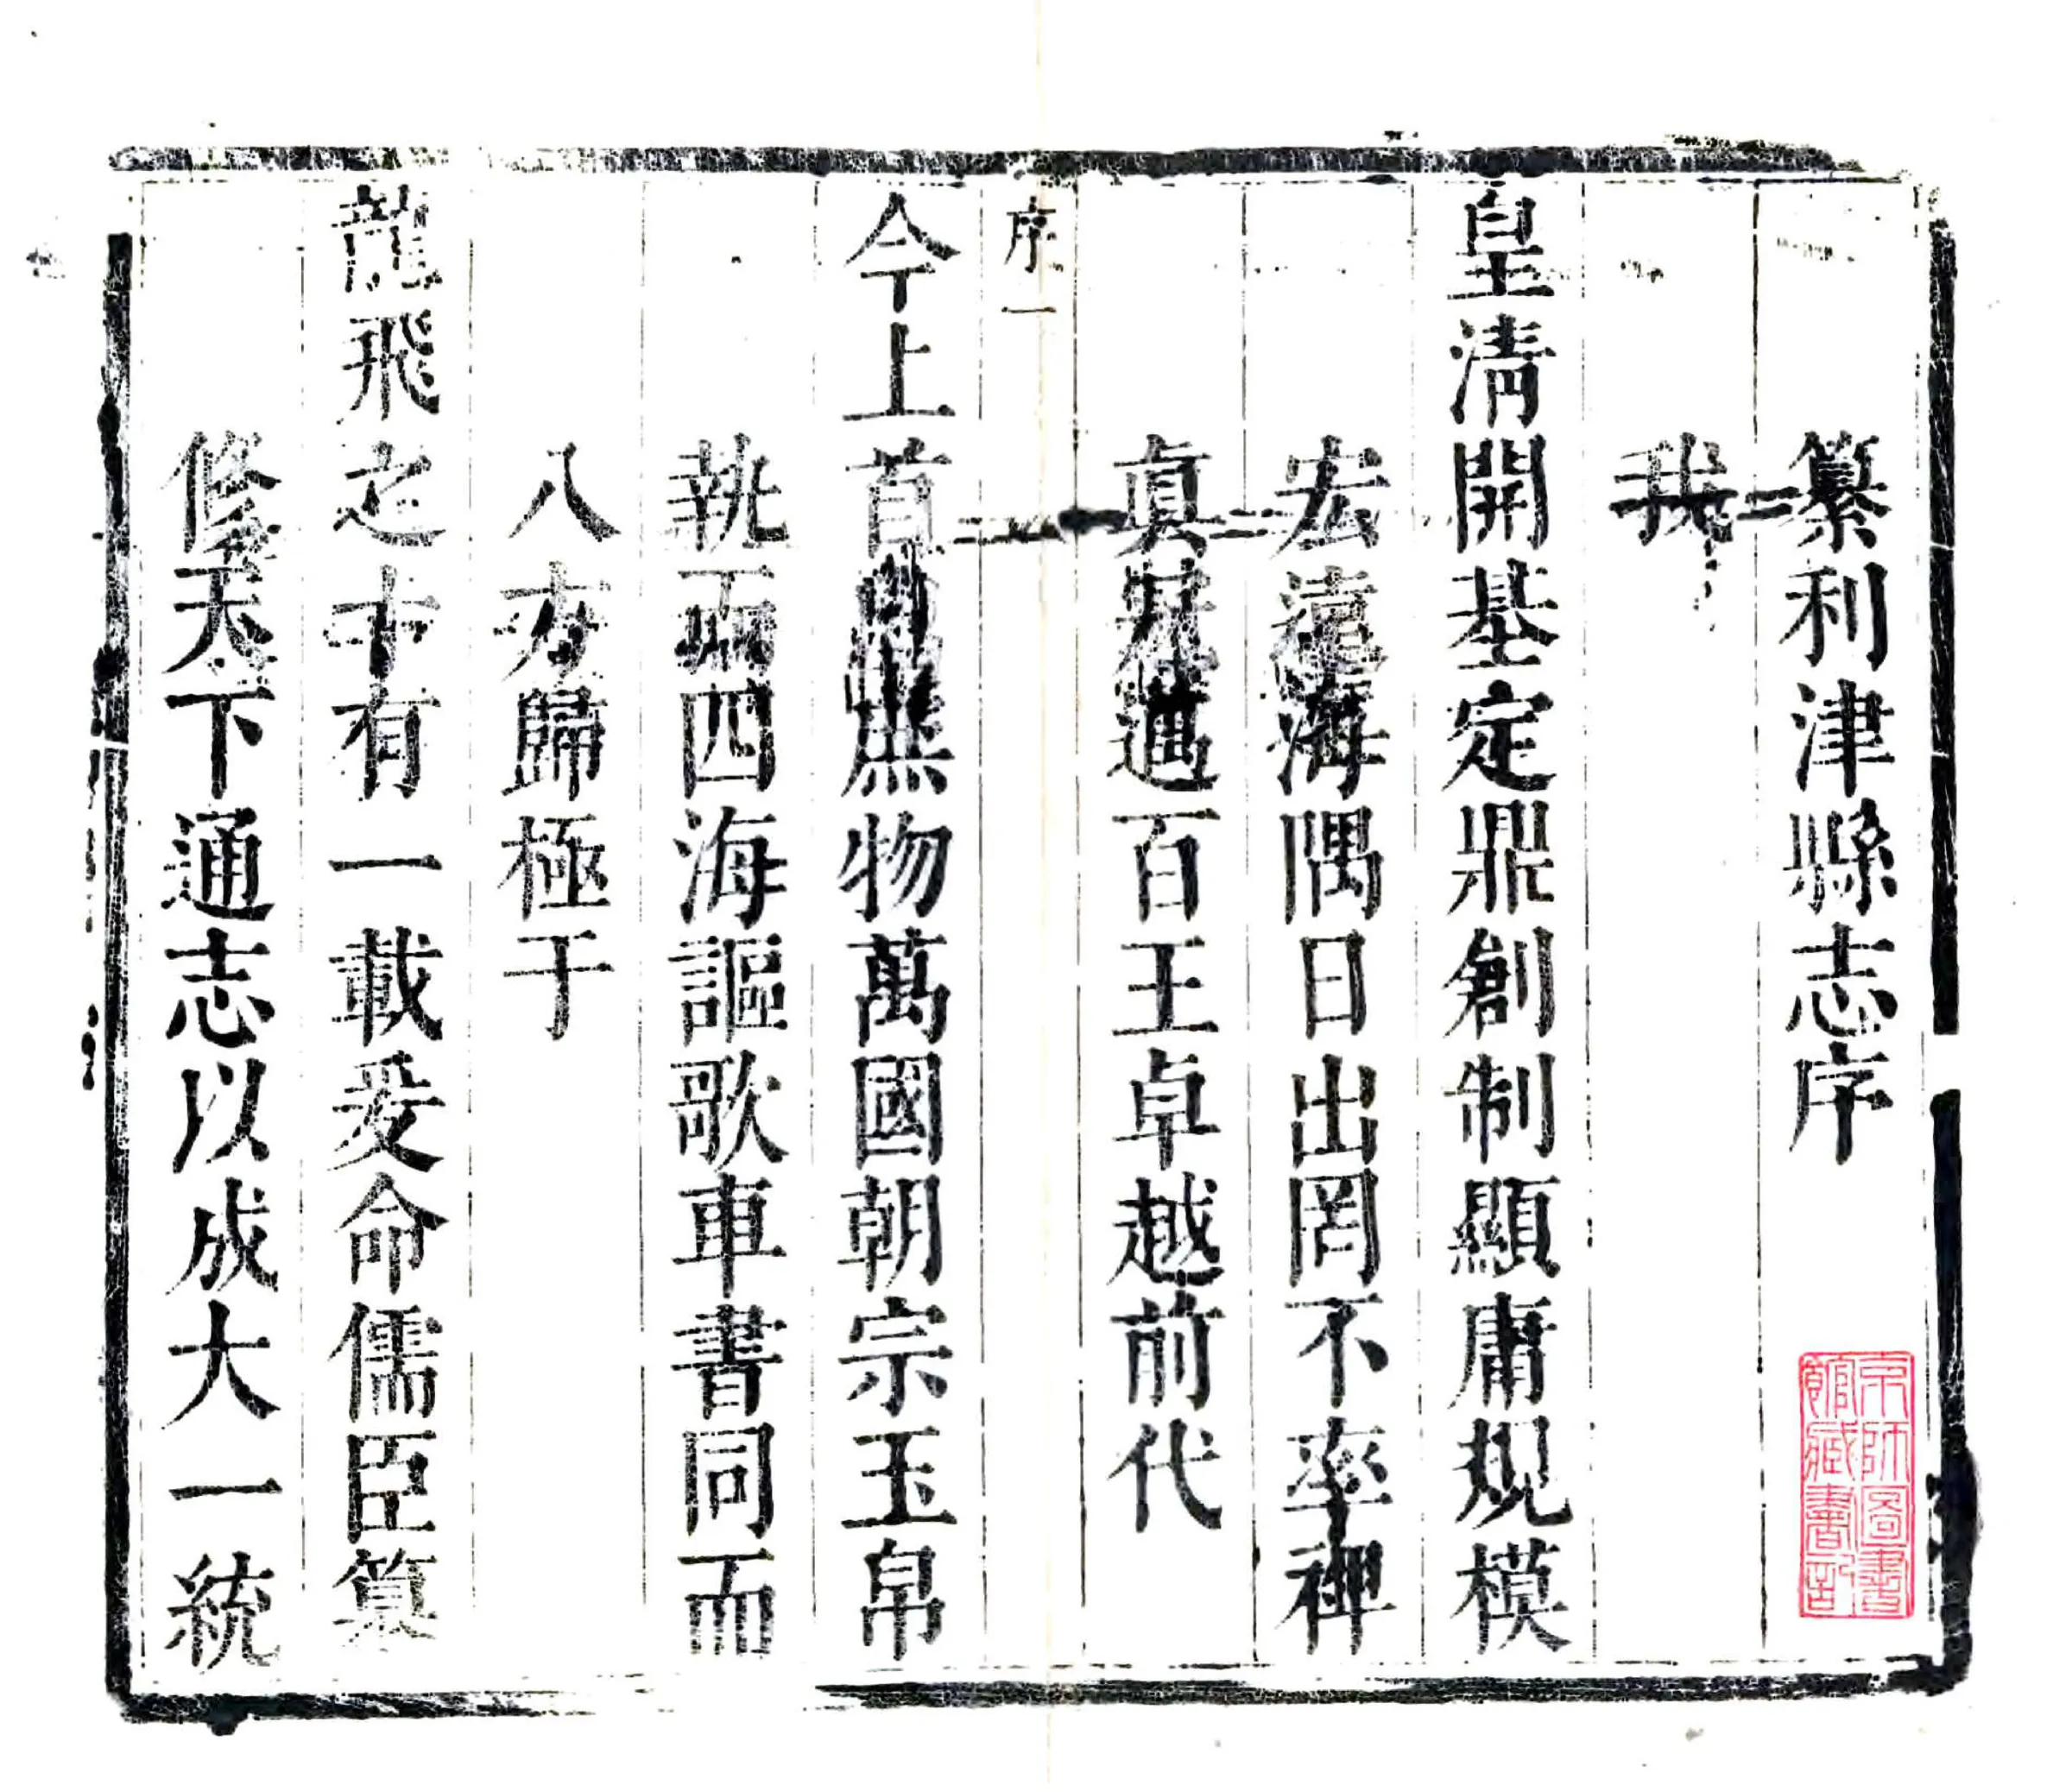 纂利津縣志序
我
皇清開基定鼎創制顯庸規模
宏遠海隅日出罔不率裨
真邁百王卓越前代
序一
今上首庶物萬國朝宗玉帛
執而四海謳歌車書同而
八方歸極于
龍飛之十有一載爰命儒臣纂
修天下通志以成大一統
京師圖書館藏書記